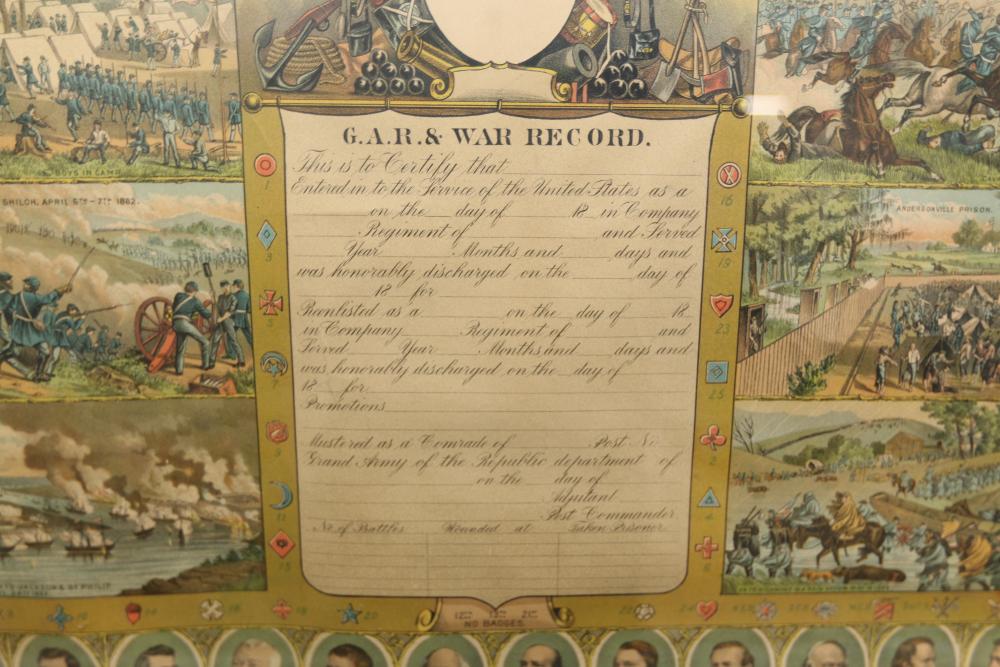 BOYS IN CAMP
SHILOH, APRIL 6TH - 7TH 1862.
ANDERSONVILLE PRISON.
G.A.R. & WAR RECORD.
This is to Certify that
Entered in to the Service of the United States as a
on the day of 18 in Company
Regiment of and Served
Year Months and days and
was honorably discharged on the day of
18 for
Reenlisted as a on the day of 18
in Company Regiment of and
Served Year Months and days and
was honorably discharged on the day of
18 for
Promotions
Mustered as a Comrade of Post No
Grand Army of the Republic department of
on the day of
Adjutant
Post Commander
No of Battles Wounded at Taken Prisoner
1
3
5
7
9
11
15
16
19
23
25
2
4
6
JACKSON & ST PHILIP
10
14
18
19
20
22
24
NO BADGES.